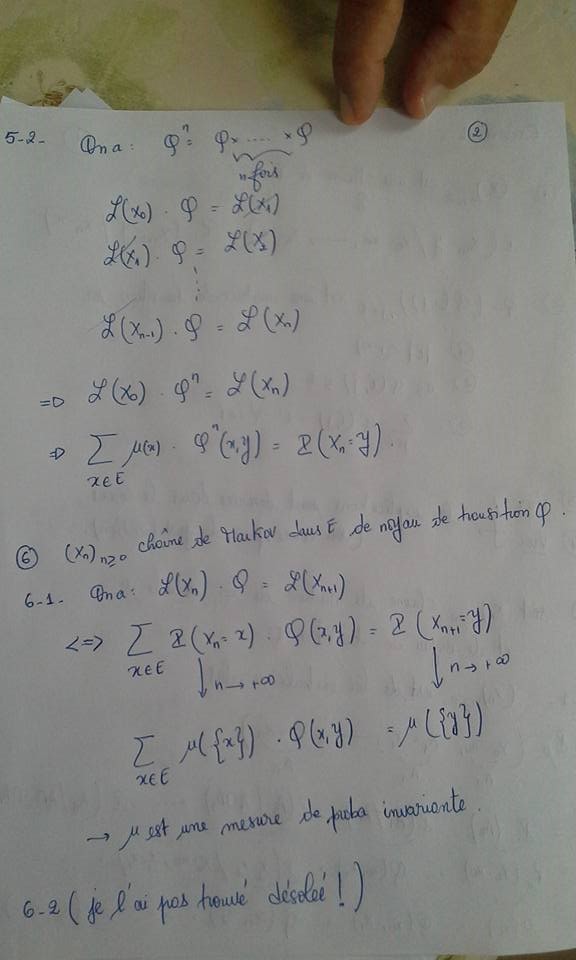 ②
5-2- On a : φⁿ = φ × ..... × φ
n fois
ℒ(X₀) . φ = ℒ(X₁)
ℒ(X₁) . φ = ℒ(X₂)
⋮
ℒ(Xₙ₋₁) . φ = ℒ(Xₙ)
=> ℒ(X₀) . φⁿ = ℒ(Xₙ)
=> ∑ μ(x) . φⁿ(x,y) = P(Xₙ = y).
x∈E
⑥ (Xₙ)ₙ≥₀ chaîne de Markov dans E de noyau de transition φ.
6-1- On a : ℒ(Xₙ) . φ = ℒ(Xₙ₊₁)
<=> ∑ P(Xₙ = x) . φ(x,y) = P(Xₙ₊₁ = y)
x∈E
↓ n → +∞ ↓ n → +∞
∑ μ({x}) . φ(x,y) = μ({y})
x∈E
→ μ est une mesure de proba invariante.
6-2 (je l'ai pas trouvé désoleé !)